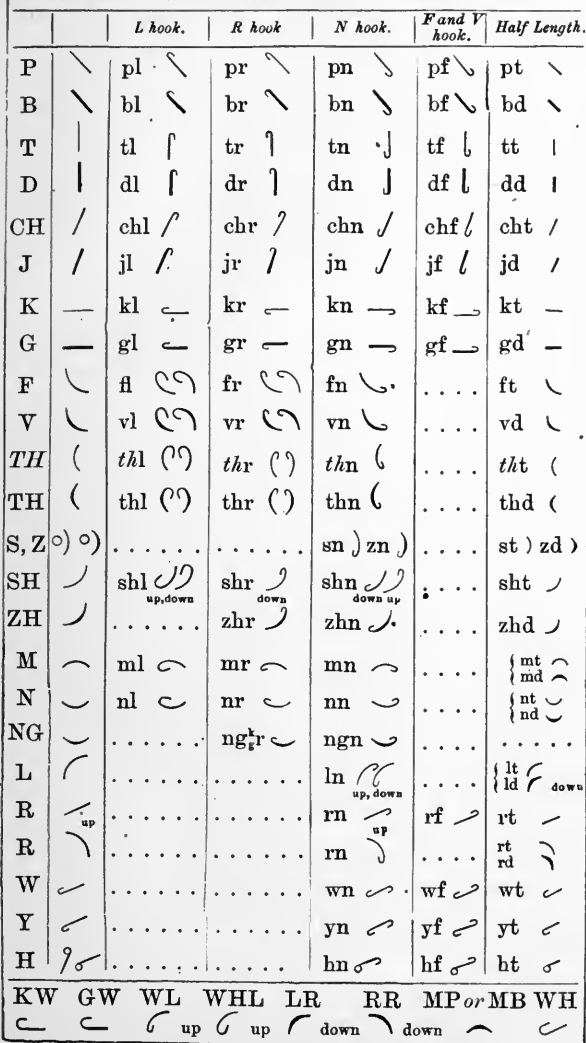 L hook. R hook N hook. F and V hook. Half Length.
P pl pr pn pf pt
B bl br bn bf bd
T tl tr tn tf tt
D dl dr dn df dd
CH chl chr chn chf cht
J jl jr jn jf jd
K kl kr kn kf kt
G gl gr gn gf gd
F fl fr fn . . . . ft
V vl vr vn . . . . vd
TH thl thr thn . . . . tht
TH thl thr thn . . . . thd
S, Z . . . . . . . . . . . sn zn . . . . st zd
SH shl up, down shr down shn down up . . . . sht
ZH . . . . . . zhr zhn . . . . zhd
M ml mr mn . . . . mt md
N nl nr nn . . . . nt nd
NG . . . . . . ngkgr ngn . . . . . . . . .
L . . . . . . . . . . . . ln up, down . . . . lt ld down
R up . . . . . . . . . . . . rn up rf rt
R . . . . . . . . . . . . rn . . . . rt rd
W . . . . . . . . . . . . wn wf wt
Y . . . . . . . . . . . . yn yf yt
H . . . . . . . . . . . . hn hf ht
KW GW WL WHL LR RR MP or MB WH
up up down down